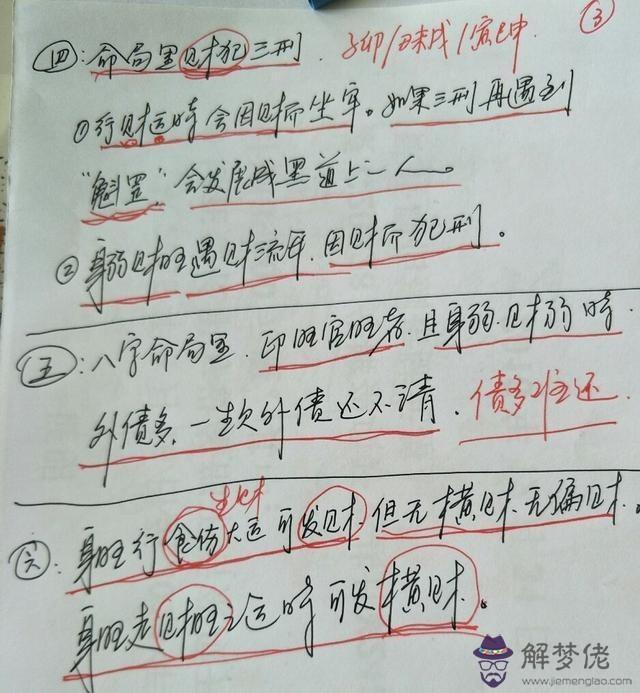 ③
四：命局里财犯三刑. 子卯/丑未戌/寅巳申
①行财运时会因财而坐牢。如果三刑再遇到
“魁罡”会发展成黑道上一人。
②身弱财旺遇财流年.因财而犯刑。
五：八字命局里.印旺官旺者.且身弱.财弱时.
外债多.一生欠外债还不清. 债多难还.
生财
六：身旺行食伤大运可发财.但无横财.无偏财.
身旺走财旺之运时可发横财。
解梦佬
www.jiemenglao.com